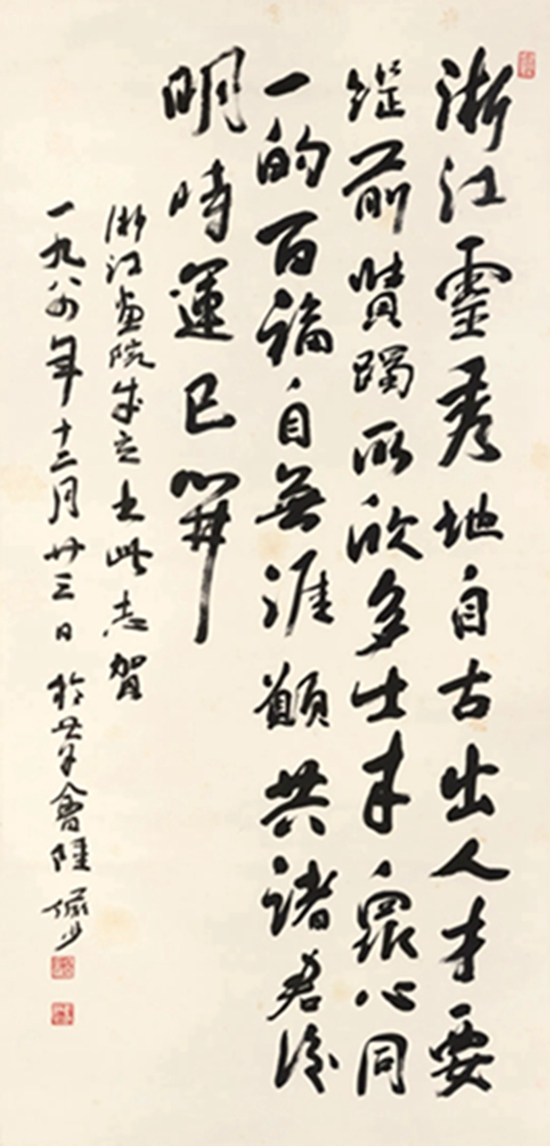 浙江靈秀地自古出人才要
前賢躅所欣多士來眾心同
一的百福自無涯願共諸君後
明時運已開
浙江畫院成立書此志賀
一九八四年十二月廿三日於會陸儼少